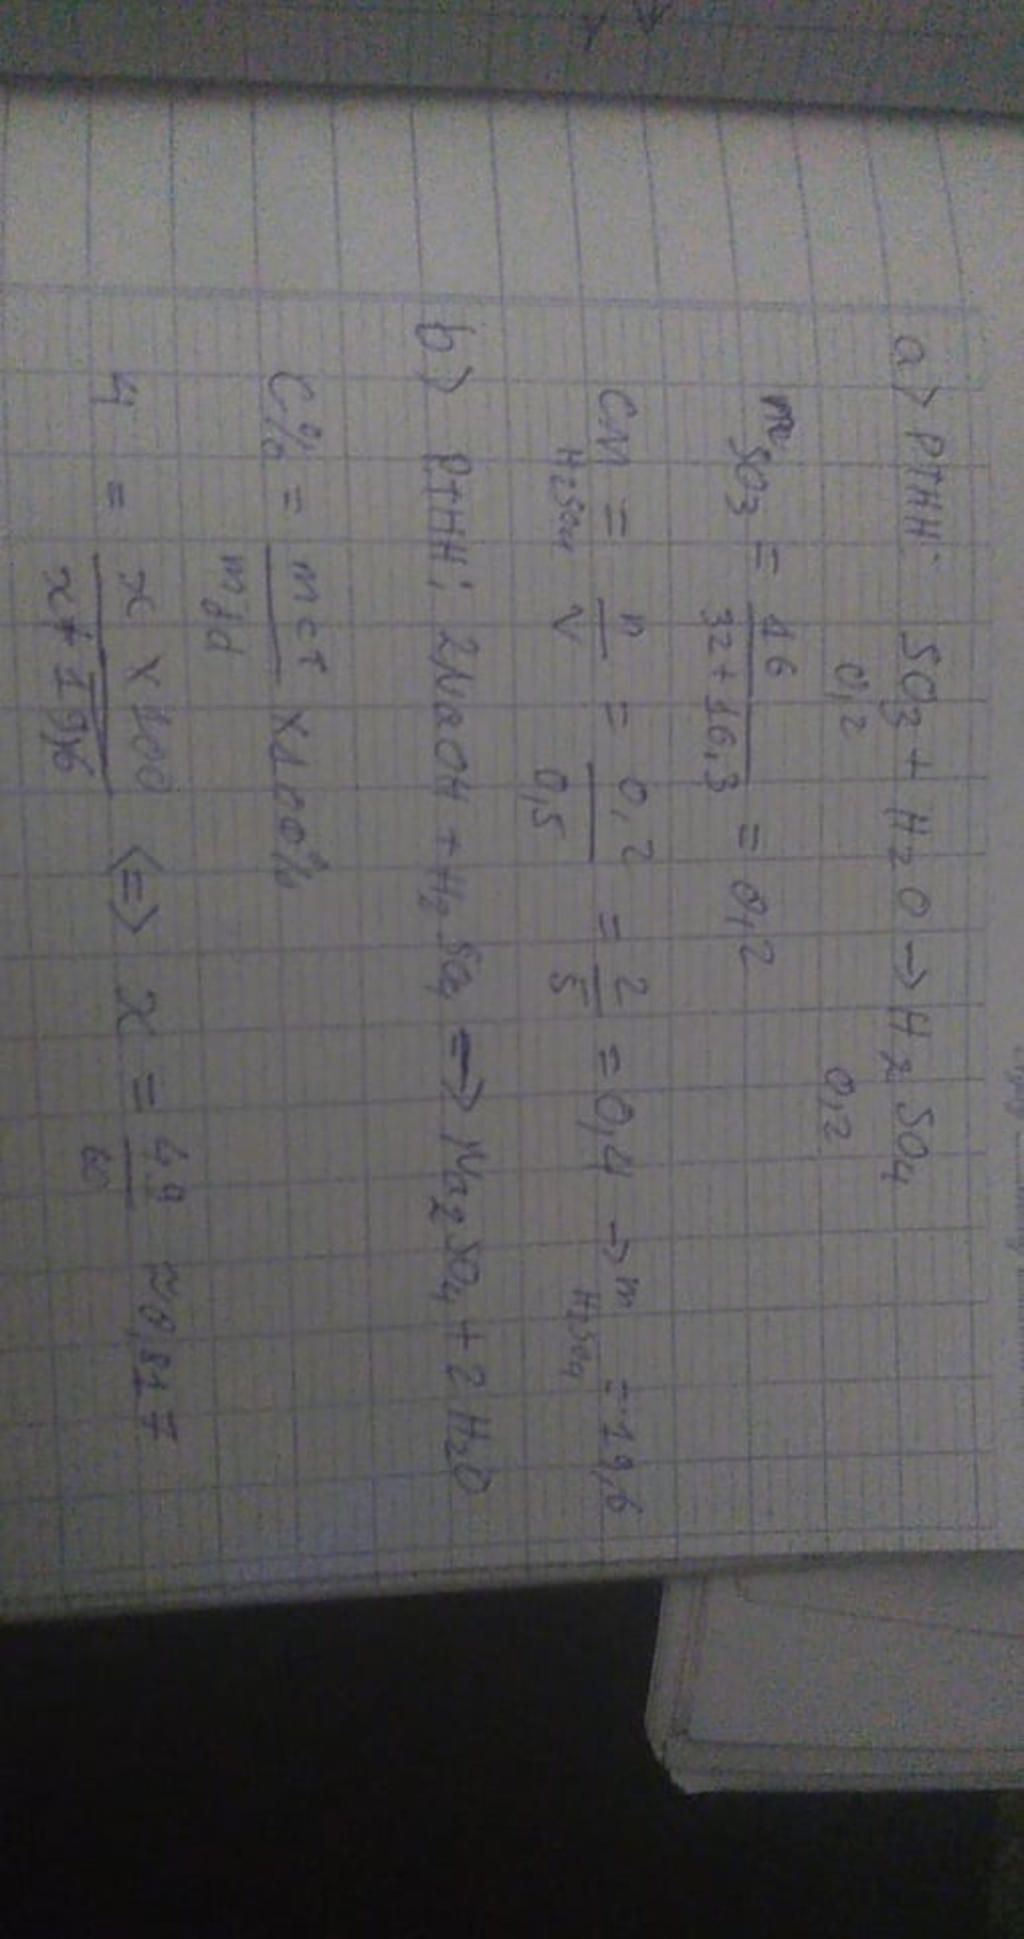 a) PTHH: SO3 + H2O → H2SO4
0,2 0,2
nSO3 = 16 / 32 + 16.3 = 0,2
CM H2SO4 = n / V = 0,2 / 0,5 = 2 / 5 = 0,4 → m H2SO4 = 19,6
b) PTHH: 2NaOH + H2SO4 → Na2SO4 + 2H2O
C% = mct / mdd x100%
4 = x x 100 / x + 19,6 <=> x = 49 / 60 ≈ 0,817